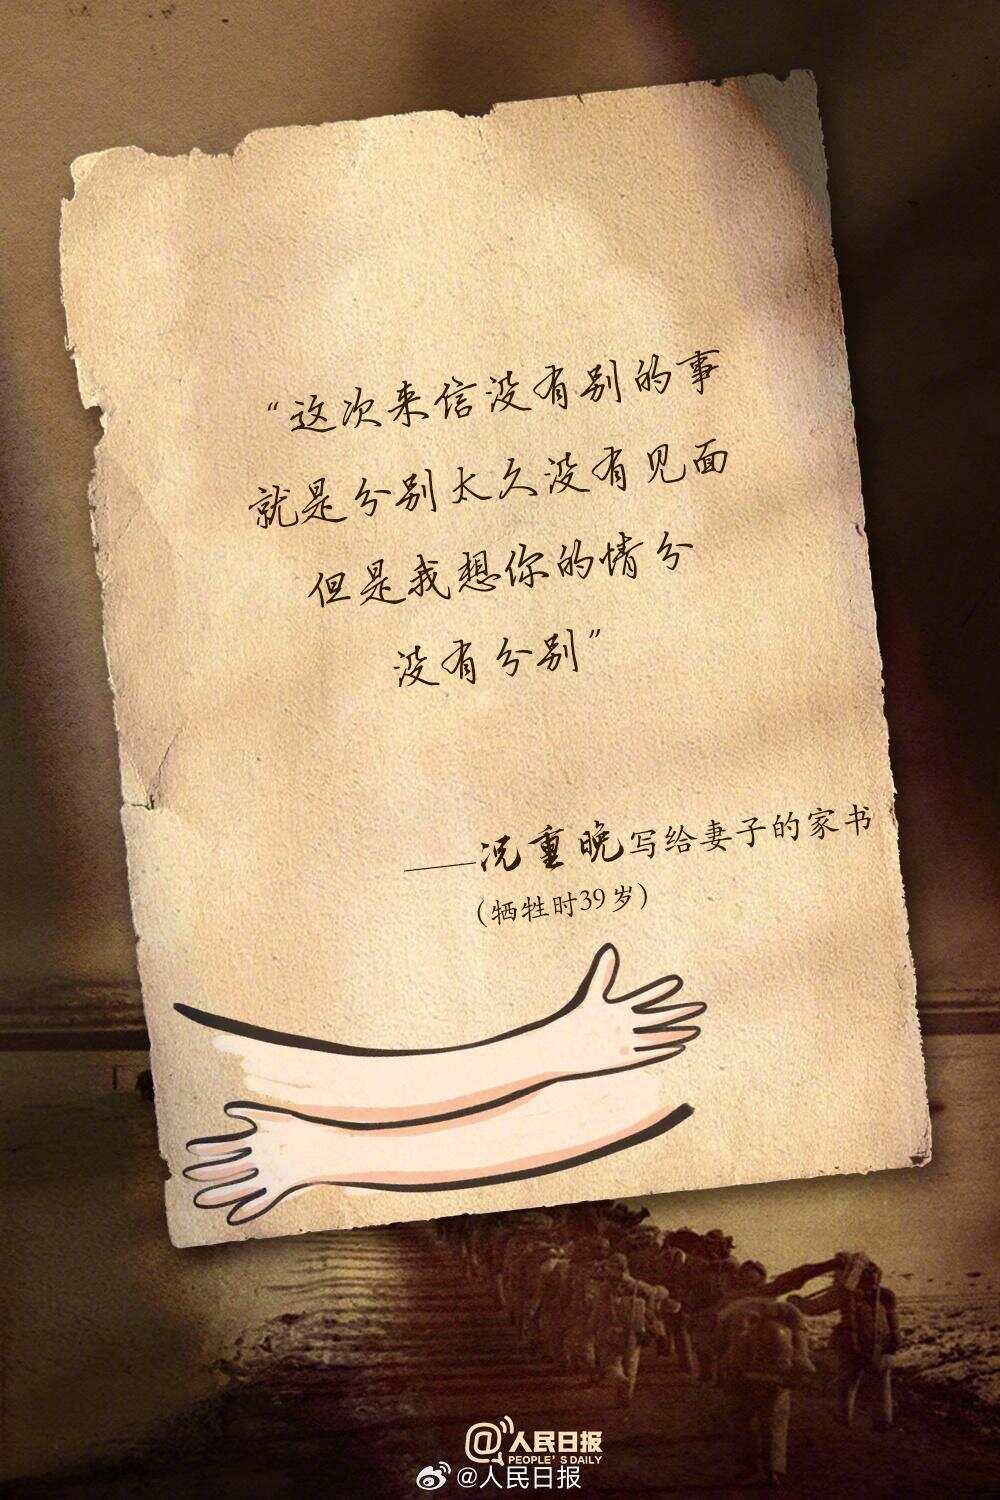 “这次来信没有别的事
就是分别太久没有见面
但是我想你的情分
没有分别”
——况重晚写给妻子的家书
（牺牲时39岁）
@人民日报
PEOPLE'S DAILY
@人民日报